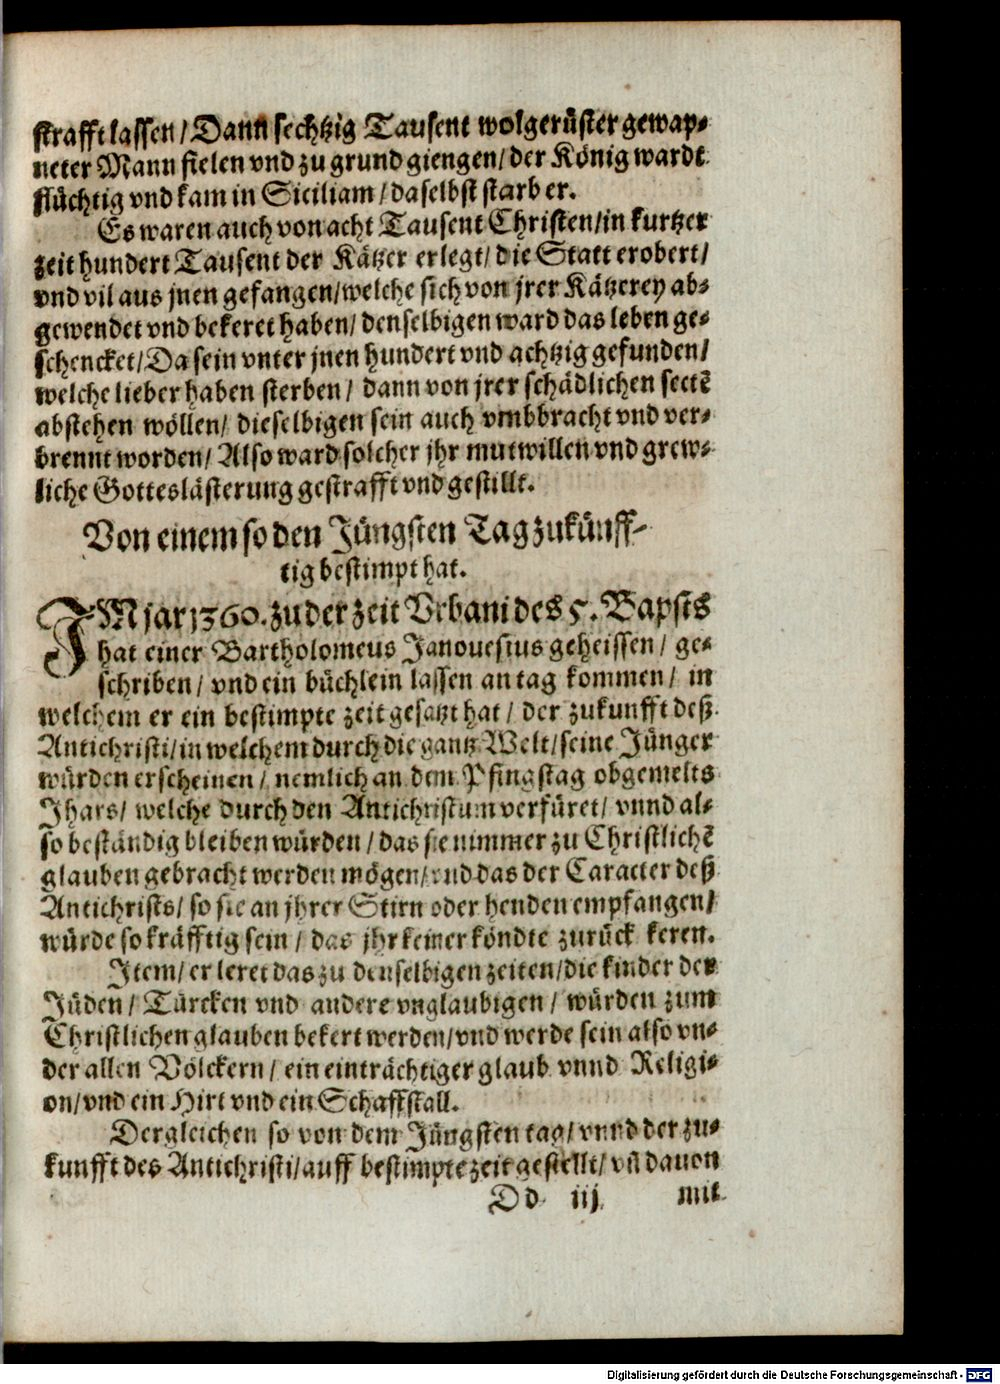 strafft lassen / Dann sechtzig Tausent wolgerüster gewap-
neter Mann fielen vnd zu grund giengen / der König wardt
flüchtig vnd kam in Siciliam / daselbst starb er.
Es waren auch von acht Tausent Christen / in kurtzer
zeit hundert Tausent der Kätzer erlegt / die Statt erobert /
vnd vil aus jnen gefangen / welche sich von jrer Kätzerey ab-
gewendet vnd bekeret haben / denselbigen ward das leben ge-
schencket / Da sein vnter jnen hundert vnd achtzig gefunden /
welche lieber haben sterben / dann von jrer schädlichen sectē
abstehen wöllen / dieselbigen sein auch vmbbracht vnd ver-
brennt worden / Also ward solcher jhr mutwillen vnd grew-
liche Gotteslästerung gestrafft vnd gestillt.
Von einem so den Jüngsten Tag zukünff-
tig bestimpt hat.
IM jar 1360. zu der zeit Vrbani des 5. Bapsts
hat einer Bartholomeus Janouesius geheissen / ge-
schriben / vnd ein büchlein lassen an tag kommen / in
welchem er ein bestimpte zeit gesatzt hat / der zukunfft deß
Antichristi / in welchem durch die gantz Welt / seine Jünger
würden erscheinen / nemlich an dem Pfingstag obgemelts
Jhars / welche durch den Antichristum verfüret / vnnd al-
so beständig bleiben würden / das sie nimmer zu Christlichē
glauben gebracht werden mögen / vnd das der Caracter deß
Antichrists / so sie an jhrer Stirn oder henden empfangen /
würde so kräfftig sein / das jhr keiner köndte zurück keren.
Item / er leret das zu denselbigen zeiten / die kinder der
Jüden / Türcken vnd andere vnglaubigen / würden zum
Christlichen glauben bekert werden / vnd werde sein also vn-
der allen Völckern / ein einträchtiger glaub vnnd Religi-
on / vnd ein Hirt vnd ein Schaffstall.
Dergleichen so von dem Jüngsten tag / vnnd der zu-
kunfft des Antichristi / auff bestimpte zeit gestellt / vñ dauon
Dd iij mit
Digitalisierung gefördert durch die Deutsche Forschungsgemeinschaft - DFG